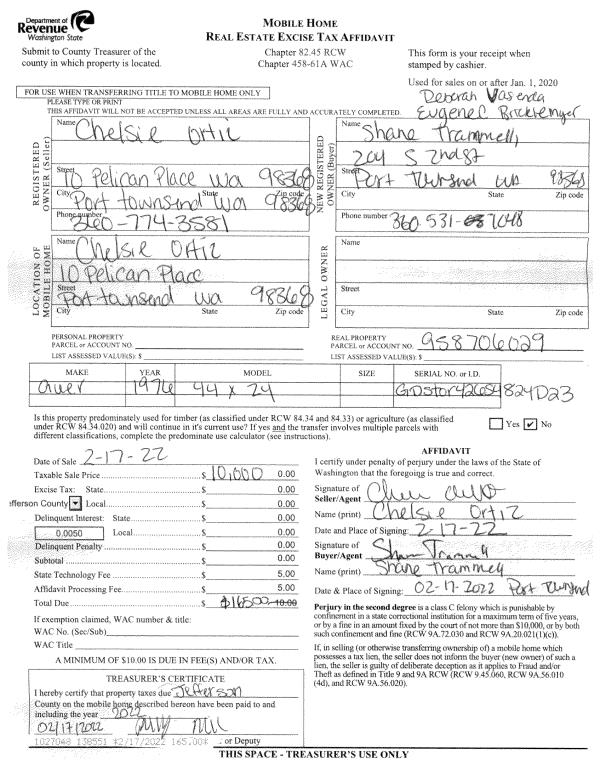 Department of
Revenue
Washington State
MOBILE HOME
REAL ESTATE EXCISE TAX AFFIDAVIT
Submit to County Treasurer of the
county in which property is located.
Chapter 82.45 RCW
Chapter 458-61A WAC
This form is your receipt when
stamped by cashier.
Used for sales on or after Jan. 1, 2020
FOR USE WHEN TRANSFERRING TITLE TO MOBILE HOME ONLY
PLEASE TYPE OR PRINT
THIS AFFIDAVIT WILL NOT BE ACCEPTED UNLESS ALL AREAS ARE FULLY AND ACCURATELY COMPLETED.
Deborah
Eugene C
REGISTERED OWNER (Seller)
Name Chelsie Ortiz
Street 10 Pelican Place wa 98368
City Port townsend wa State 98368 Zip code
Phone number 360-774-3581
NEW REGISTERED OWNER (Buyer)
Name Shane Trammell,
204 S 2nd St
Street Port Townsend wa 98368
City State Zip code
Phone number 360.531- 7048
LOCATION OF MOBILE HOME
Name Chelsie Ortiz
10 Pelican Place
Street
Port townsend wa 98368
City State Zip code
LEGAL OWNER
Name
Street
City State Zip code
PERSONAL PROPERTY
PARCEL or ACCOUNT NO.
LIST ASSESSED VALUE(S): $
REAL PROPERTY
PARCEL or ACCOUNT NO. 958706029
LIST ASSESSED VALUE(S): $
MAKE YEAR MODEL SIZE SERIAL NO. or I.D.
1976 44 x 24
Is this property predominately used for timber (as classified under RCW 84.34 and 84.33) or agriculture (as classified
under RCW 84.34.020) and will continue in it's current use? If yes and the transfer involves multiple parcels with
different classifications, complete the predominate use calculator (see instructions).
Yes ✓ No
Date of Sale 2-17-22
Taxable Sale Price $ 10,000 0.00
Excise Tax: State $ 0.00
efferson County Local $ 0.00
Delinquent Interest: State $ 0.00
0.0050 Local $ 0.00
Delinquent Penalty $ 0.00
Subtotal $ 0.00
State Technology Fee $ 5.00
Affidavit Processing Fee $ 5.00
Total Due $ $16500 10.00
If exemption claimed, WAC number & title:
WAC No. (Sec/Sub)
WAC Title
A MINIMUM OF $10.00 IS DUE IN FEE(S) AND/OR TAX.
AFFIDAVIT
I certify under penalty of perjury under the laws of the State of
Washington that the foregoing is true and correct.
Signature of
Seller/Agent
Name (print) Chelsie Ortiz
Date and Place of Signing: 2-17-22
Signature of
Buyer/Agent Shane Trammell
Name (print) Shane Trammell
Date & Place of Signing: 02-17-2022 Port Townsend
Perjury in the second degree is a class C felony which is punishable by
confinement in a state correctional institution for a maximum term of five years,
or by a fine in an amount fixed by the court of not more than $10,000, or by both
such confinement and fine (RCW 9A.72.030 and RCW 9A.20.021(1)(c)).
If, in selling (or otherwise transferring ownership of) a mobile home which
possesses a tax lien, the seller does not inform the buyer (new owner) of such a
lien, the seller is guilty of deliberate deception as it applies to Fraud and/or
Theft as defined in Title 9 and 9A RCW (RCW 9.45.060, RCW 9A.56.010
(4d), and RCW 9A.56.020).
TREASURER'S CERTIFICATE
I hereby certify that property taxes due Jefferson
County on the mobile home described hereon have been paid to and
including the year 2022
02/17/2022
1027048 138551 *2/17/2022 165.00* . or Deputy
THIS SPACE - TREASURER'S USE ONLY